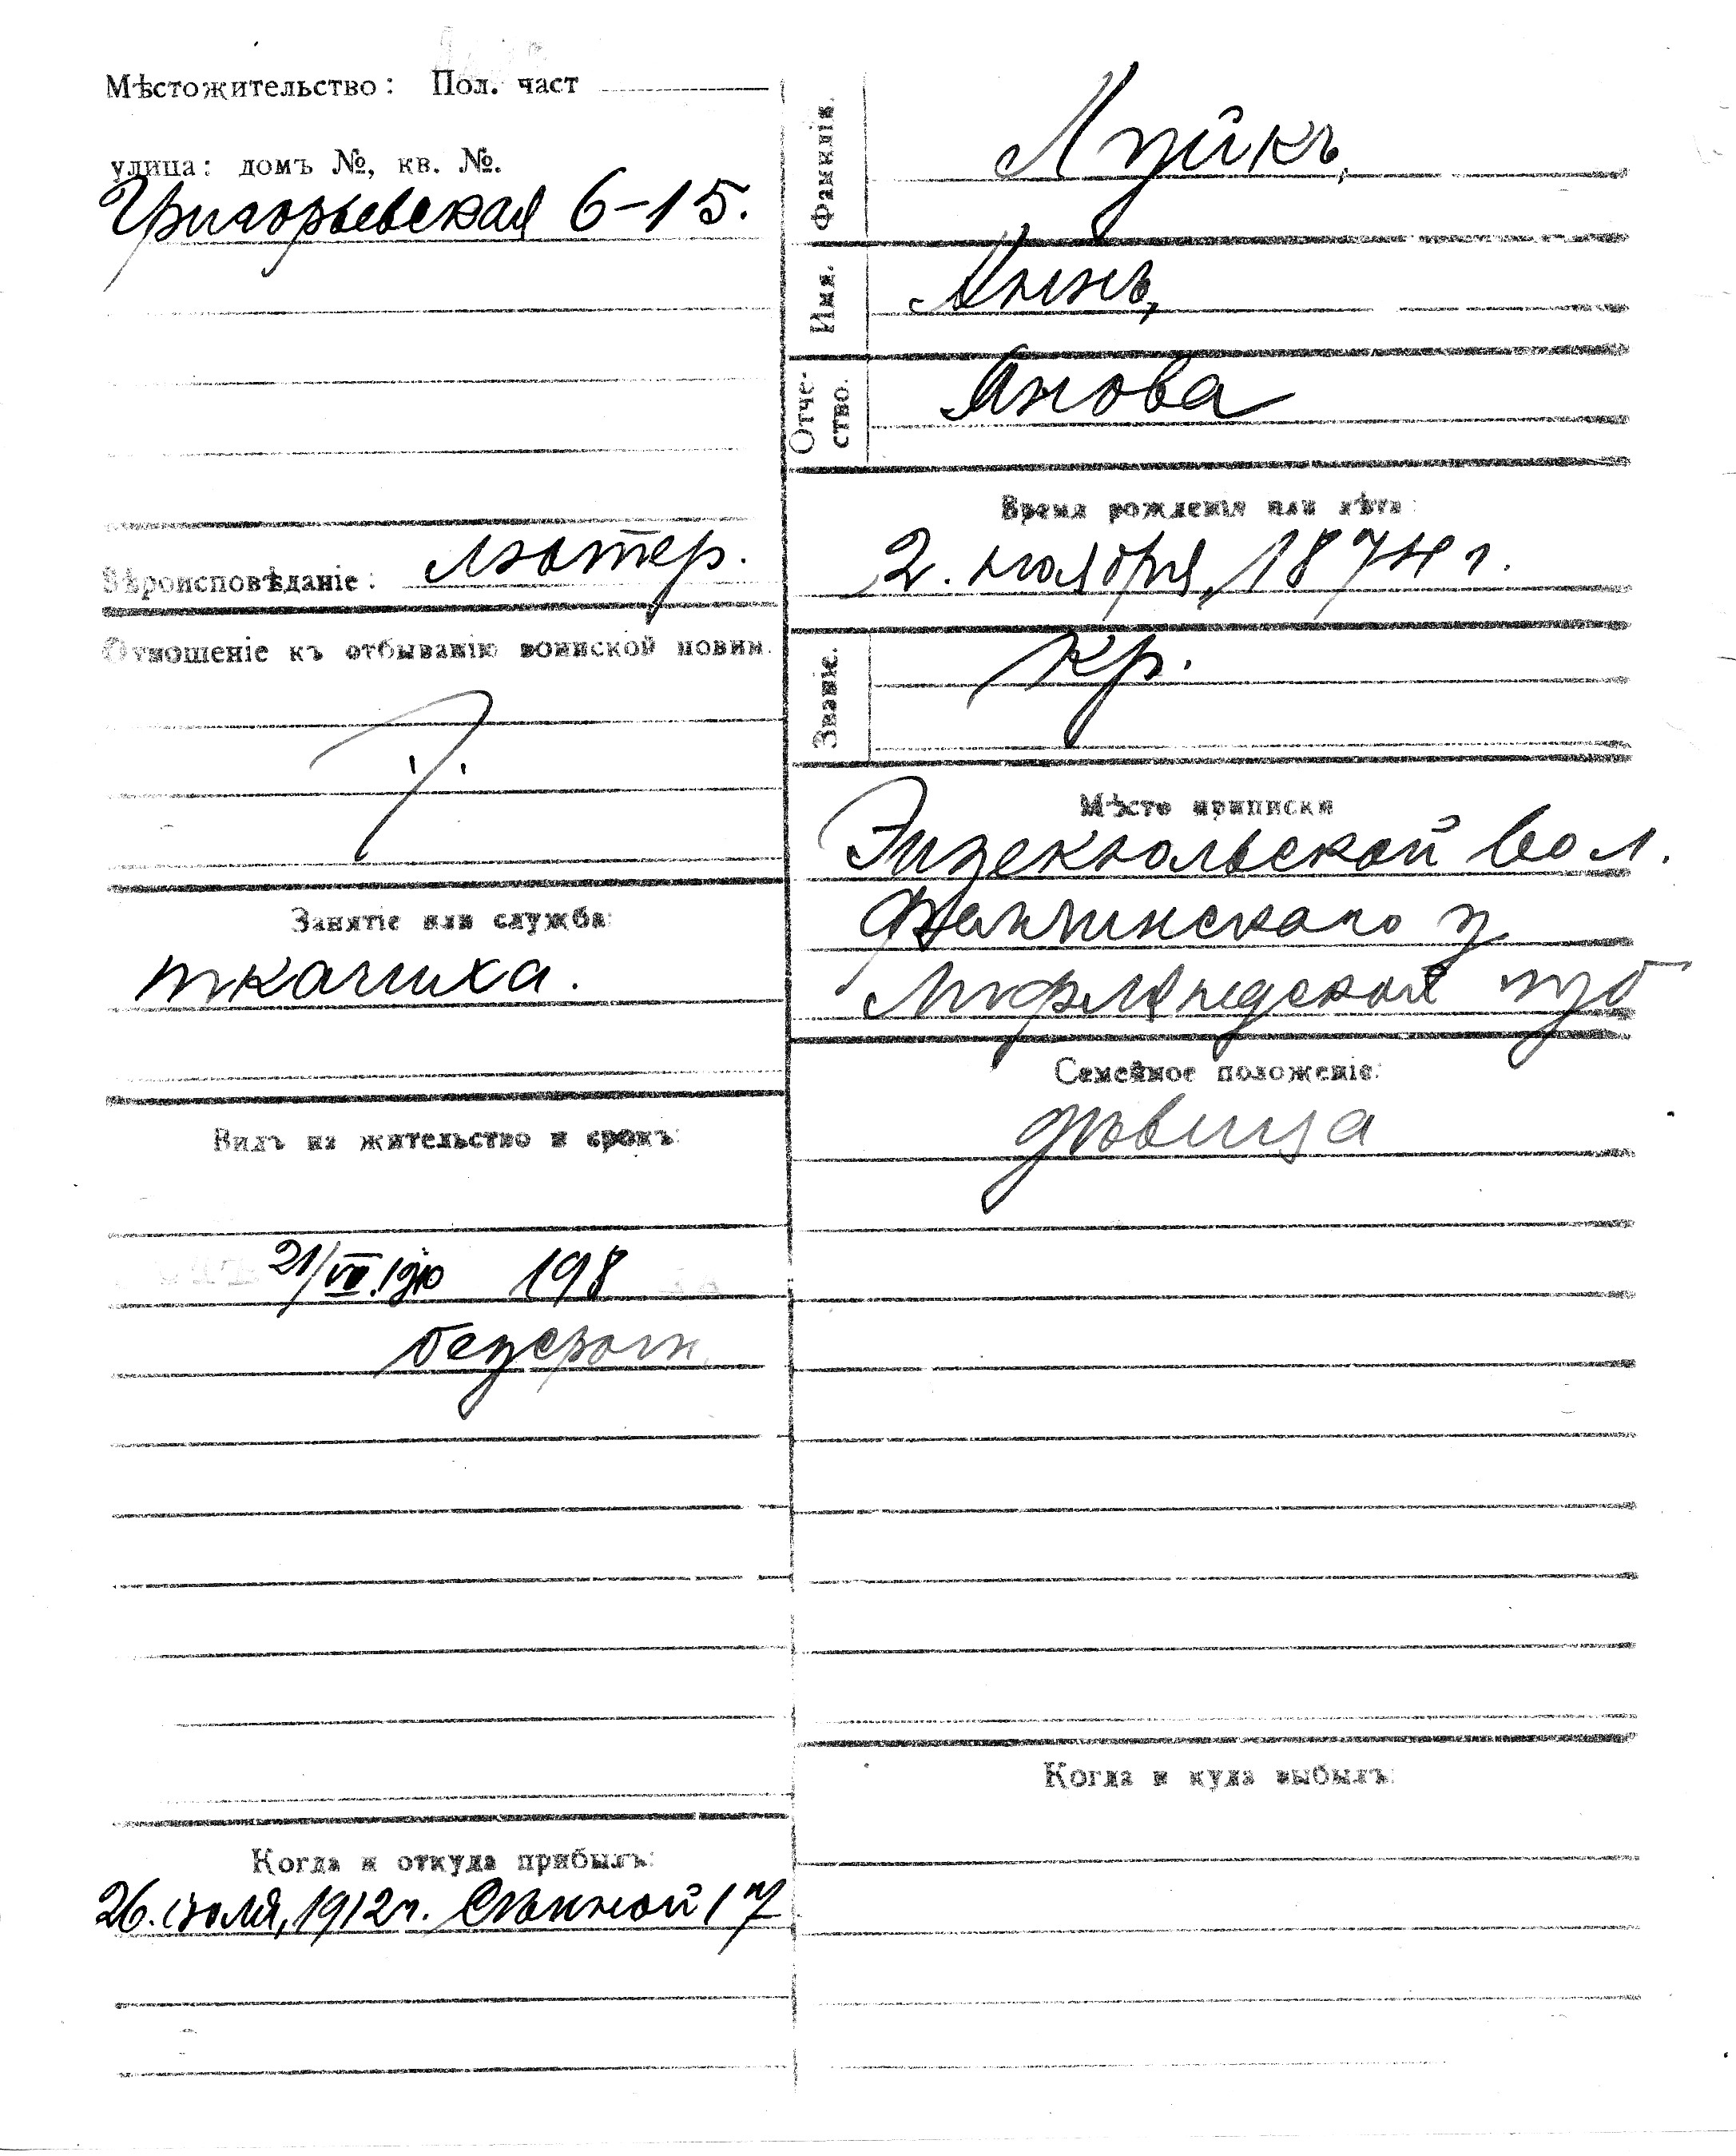 Мѣстожительство: Пол. част
улица: домъ №, кв. №.
Григорьевская 6-15.
Вѣроисповѣданіе: лютер.
Отношеніе къ отбыванію воинской повин.
Занятіе или служба:
ткачиха.
Видъ на жительство и срокъ:
21/VII 1910 198
безсрочн.
Когда и откуда прибылъ:
26. іюля, 1912 г. Сѣнной 17
Фамилія. Луйкъ,
Имя. Аннъ,
Отче-
ство. Янова
Время рожденія или лѣта:
2. ноября, 1874 г.
Званіе. Кр.
Мѣсто приписки
Эизекюльской вол.
Феллинскаго у.
Лифляндской губ
Семейное положеніе:
дѣвица
Когда и куда выбылъ: